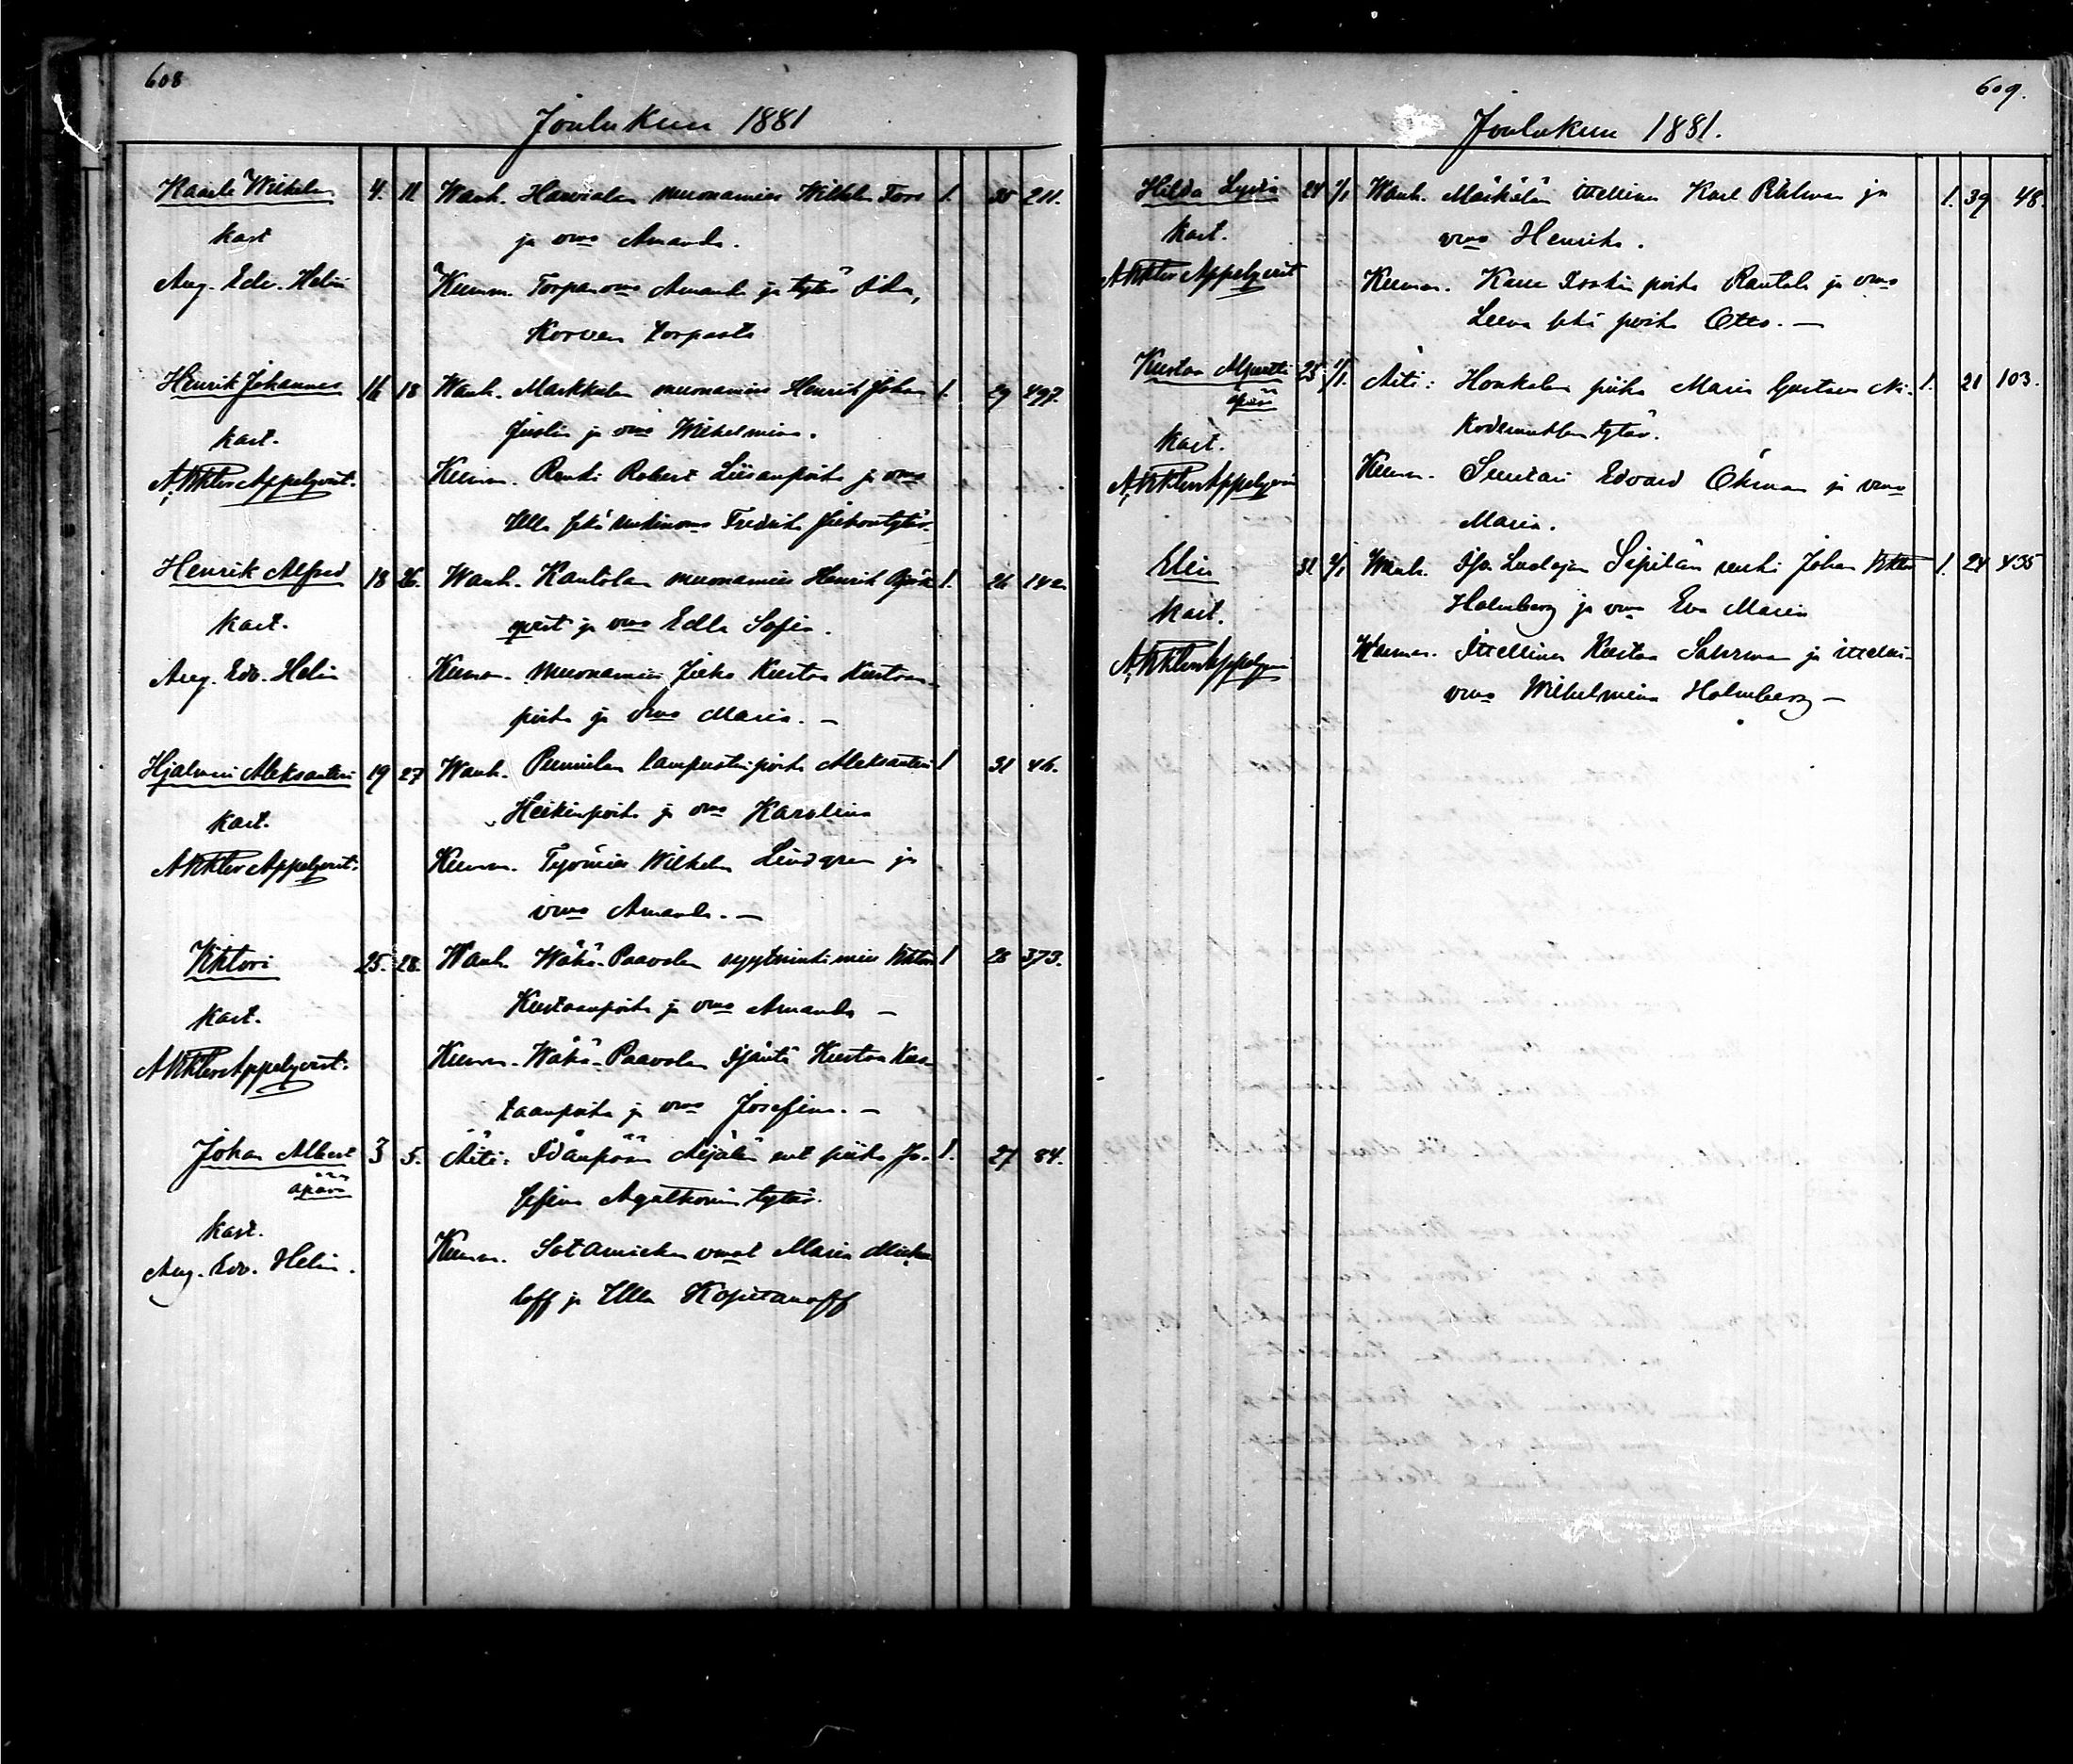 608
Joulukuu 1881
Kaarle Wilhelm 4. 11 Wanh. Haavialan muonamies Wilhelm Fors 1. 35 211.
kast ja vmo Amanda.
Aug. Edv. Helin Kumm. Torpanvmo Amanda ja tytär Ida,
Korven torpasta
Henrik Johannes 16 18 Wanh. Markkulan muonamies Henrik Johan 1. 29 497.
kast. Juslin ja vmo Wilhelmina.
A. Viktor Appelqvist. Kumm. Renki Robert Liisanpoika ja vmo
Ulla sekä Fredrika
Henrik Alfred 18 26. Wanh. Kantolan muonamies Henrik Björk 1. 26 142
kast. qvist ja vmo Edla Sofia.
Aug. Edv. Helin Kumm. muonamies Kustaa Kustaan-
poika ja vmo Maria. —
Hjalmari Aleksanteri 19 27 Wanh. lampuotin poika Aleksanteri 1 31 46.
kast. Heikinpoika ja vmo Karolina
A Viktor Appelqvist. Kumm. Työmies Wilhelm Lindgren ja
vmo Amanda. —
Viktori 25. 28. Wanh. Wähä-Paavolan mies Viktor 1 28 373.
kast. Kustaanpoika ja vmo Amanda —
A Viktor Appelqvist. Kumm. Wähä-Paavolan Isäntä Kustaa Kus-
taanpoika ja vmo Josefina. —
Johan Albert 3 5. Äiti: Idänpään Äijälän piika Jo- 1. 27 84.
äpärä sefina Agathonin tytär.
kast.
Aug. Edv. Helin. Kumm. Sotamiehen vmot Maria
loff ja Ulla Kapitanoff
609.
Joulukuu 1881.
Hilda Lydia 24 1/1 Wanh. Mäskälän itsellinen Karl ja 1. 39 48.
kast. vmo Henrika.
A Viktor Appelqvist Kumm. Kalle Isakin poika Rantala ja vmo
Leena sekä poika Otto. —
Kustaa 25 1/1. Äiti: Honkalan piika Maria Gustava Ni- 1. 21 103.
äpärä kodemuksen tytär.
kast.
A. Viktor Appelqvist Kumm. Suutari Edvard Öhman ja vmo
Maria.
Elin 31 Wanh. Iso Luolajan Sipilän renki Johan Viktor 1. 24 435
kast. Holmberg ja vmo Eva Maria
A. Viktor Appelqvist Kumm. Itsellinen Kustaa ja
vmo Wilhelmina Holmberg —